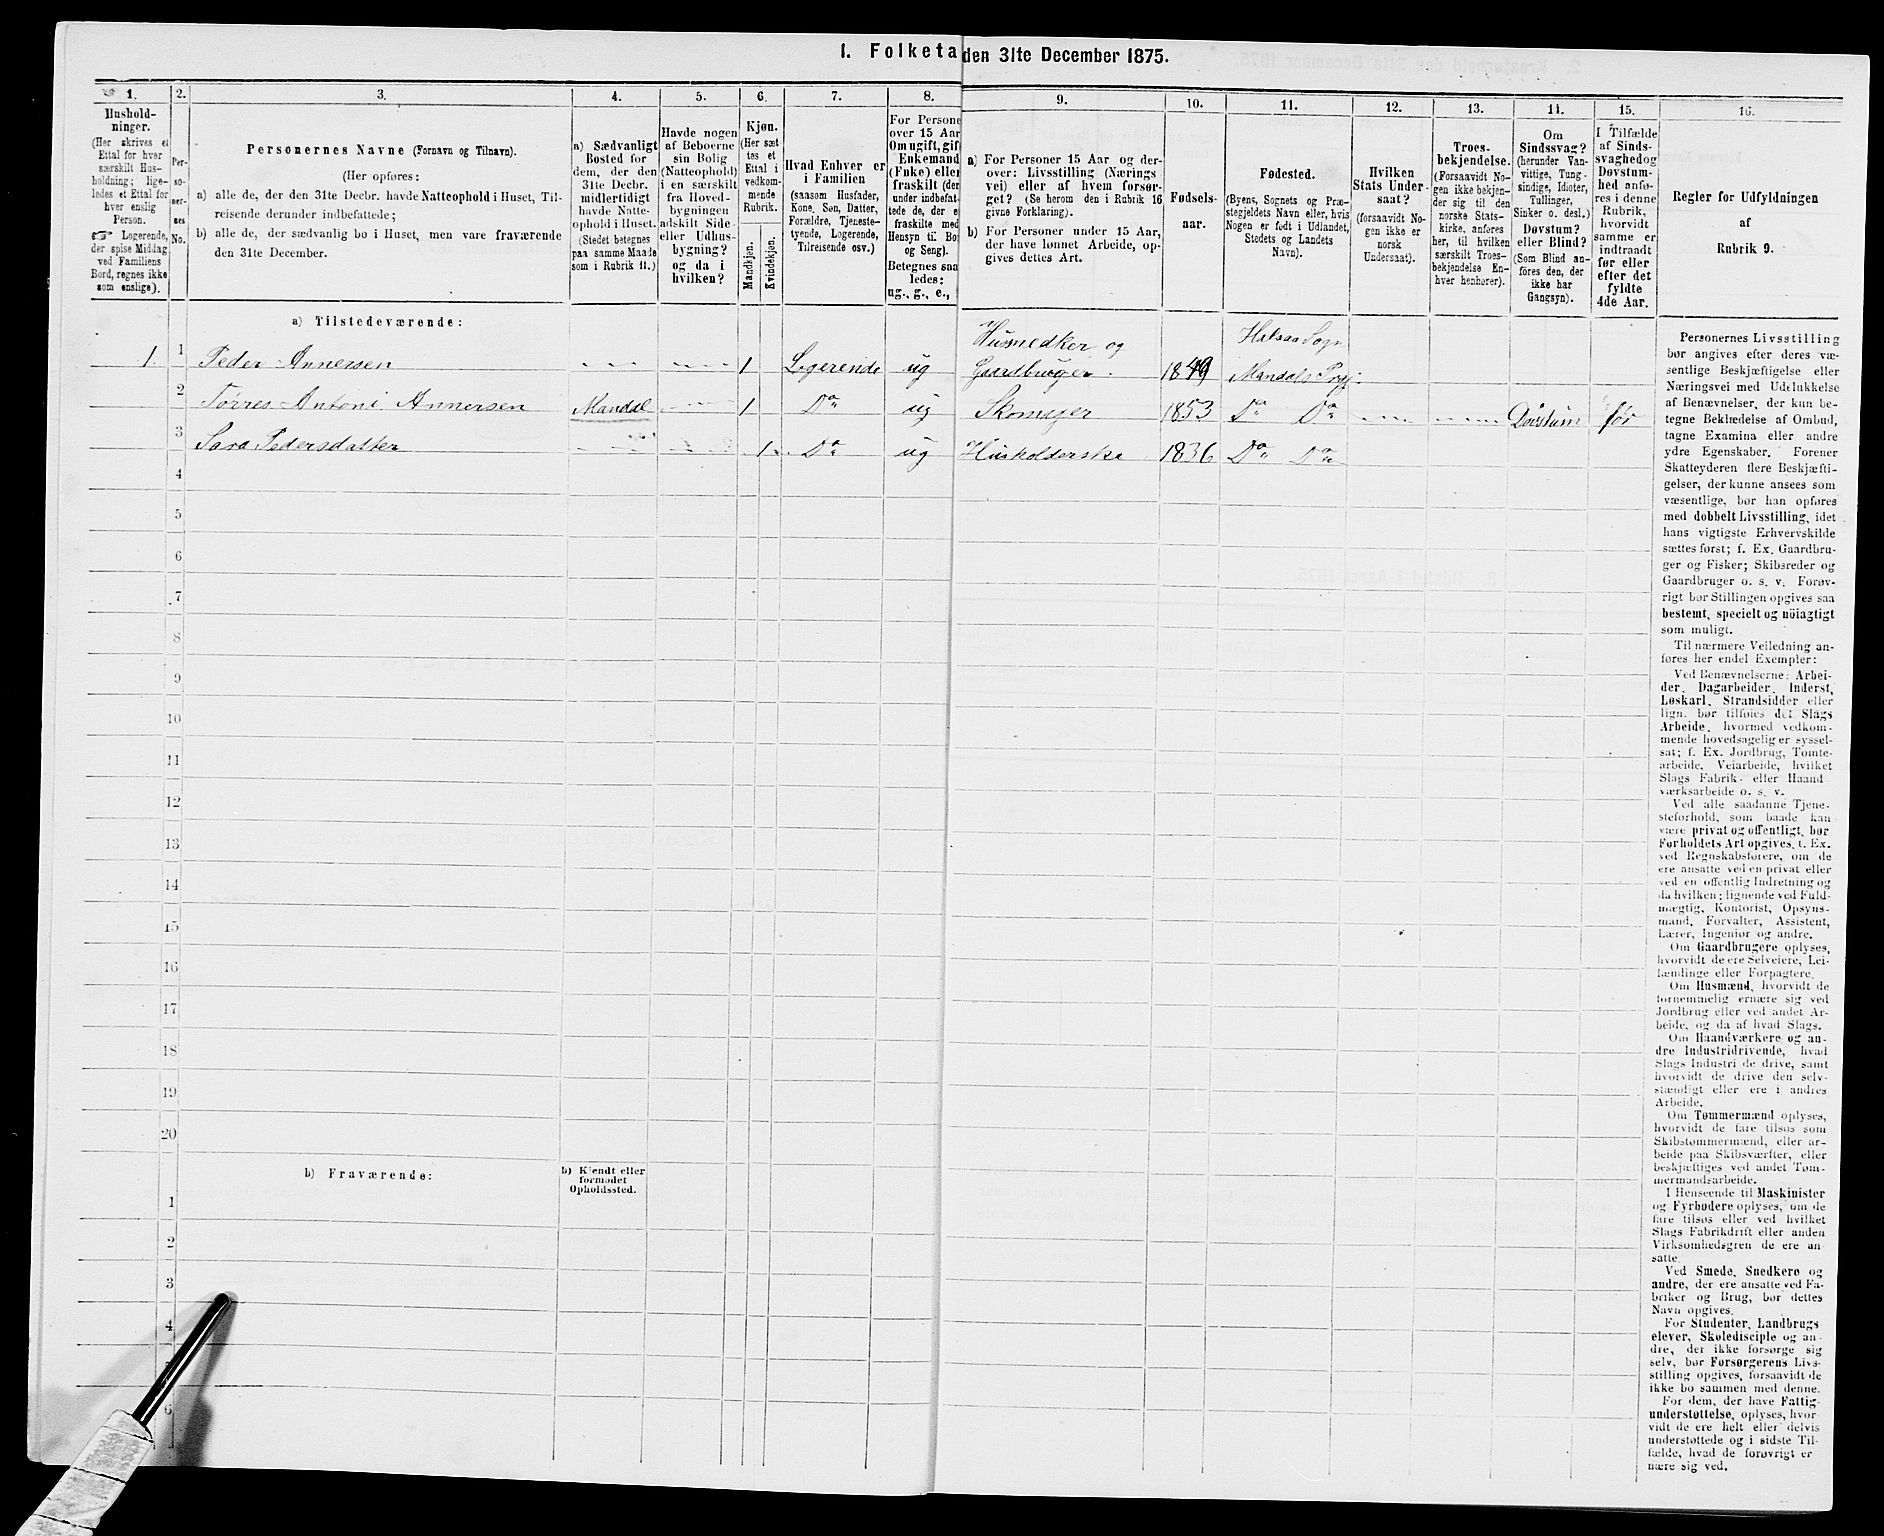 I. Folketa den 31te December 1875.
1.
Hushold-
ninger.
(Her skrives et
Ettal for hver
særskilt Hus-
holdning; lige-
ledes et Ettal for
hver enslig
Person.
☞ Logerende,
der spise Middag
ved Familiens
Bord, regnes ikke
som enslige).
2.
Per-
so-
ner-
nes
No.
3.
Personernes Navne (Fornavn og Tilnavn).
(Her opføres:
a) alle de, der den 31te Decbr. havde Natteophold i Huset, Til-
reisende derunder indbefattede;
b) alle de, der sædvanlig bo i Huset, men vare fraværende
den 31te December.
4.
a) Sædvanligt
Bosted for
dem, der den
31te Decbr.
midlertidigt
havde Natte-
ophold i Huset.
(Stedet betegnes
paa samme Maade
som i Rubrik 11.)
5.
Havde nogen
af Beboerne
sin Bolig
(Natteophold)
i en særskilt
fra Hoved-
bygningen
adskilt Side-
eller Udhus-
bygning?
og da i
hvilken?
6.
Kjøn.
(Her sæt-
tes et
Ettal i
vedkom-
mende
Rubrik.
Mandkjøn.
Kvindekjøn.
7.
Hvad Enhver er
i Familien
(saasom Husfader,
Kone, Søn, Datter,
Forældre, Tjeneste-
tyende, Logerende,
Tilreisende osv.)
8.
For Persone
over 15 Aar
Om ugift, gif
Enkemand
(Enke) elle
fraskilt (der
under indbefat-
tede de, der e
fraskilte med
Hensyn til Bo
og Seng).
Betegnes saa
ledes:
ug., g., e.,
9.
a) For Personer 15 Aar og der-
over: Livsstilling (Nærings
vei) eller af hvem forsør-
get? (Se herom den i Rubrik 16
givne Forklaring).
b) For Personer under 15 Aar,
der have lønnet Arbeide, op-
gives dettes Art.
10.
Fødsels-
aar.
11.
Fødested.
(Byens, Sognets og Præ-
stegjeldets Navn eller, hvis
Nogen er født i Udlandet,
Stedets og Landets
Navn).
12.
Hvilken
Stats Under-
saat?
(forsaavidt No-
gen ikke er
norsk
Undersaat).
13.
Troes-
bekjendelse.
(Forsaavidt No-
gen ikke bekjen-
der sig til den
norske Stats-
kirke, anføres
her, til hvilken
særskilt Troes-
bekjendelse En-
hver henhører).
14.
Om
Sindssvag?
(herunder Van-
vittige, Tung-
sindige, Idioter,
Tullinger,
Sinker o. desl.)
Døvstum?
eller Blind?
(Som Blind an-
føres den, der
ikke har
Gangsyn).
15.
I Tilfælde
af Sinds-
svaghed og
Døvstum-
hed anfø-
res i denne
Rubrik,
hvorvidt
samme er
indtraadt
før eller
efter det
fyldte
4de Aar.
16.
Regler for Udfyldningen
af
Rubrik 9.
a) Tilstedeværende:
1. 1 Peder Annersen 1 Logerende ug Husmedker og Gaardbruger. 1849 Halsaa Sogn Mandals Prgj.
2 Tørres Antoni Annersen Mandal 1 Do ug Skomager 1853 Do Do Døvstum før
3 Sara Pedersdatter 1 Do ug Husholderska 1836 Do Do
4
5
6
7
8
9
10
11
12
13
14
15
16
17
18
19
20
b) Fraværende:
b) Kjendt eller
formodet
Opholdssted.
1
2
3
4
6
Personernes Livsstilling
bør angives efter deres væ-
sentlige Beskjæftigelse eller
Næringsvei med Udelukkelse
af Benævnelser, der kun be-
tegne Beklædelse af Ombud,
tagne Examina eller andre
ydre Egenskaber. Forener
Skatteyderen flere Beskjæfti-
gelser, der kunne ansees som
væsentlige, bør han opføres
med dobbelt Livsstilling, idet
hans vigtigste Erhvervskilde
sættes først; f. Ex. Gaardbru-
ger og Fisker; Skibsreder og
Gaardbruger o. s. v. Forøv-
rigt bør Stillingen opgives saa
bestemt, specielt og nöiagtigt
som muligt.
Til nærmere Veiledning an-
føres her endel Exempler:
Ved Benævnelserne: Arbei-
der, Dagarbeider, Inderst,
Løskarl, Strandsidder eller
lign. bør tilføies det Slags
Arbeide, hvormed vedkom-
mende hovedsagelig er syssel-
sat; f. Ex. Jordbrug, Tomte-
arbeide, Veiarbeide, hvilket
Slags Fabrik- eller Haand
værksarbeide o. s. v.
Ved alle saadanne Tjene-
steforhold, som baade kan
være privat og offentligt, bør
Forholdets Art opgives, f. Ex.
ved Regnskabsførere, om de
ere ansatte ved en privat eller
ved en offentlig Indretning og
da hvilken; lignende ved Fuld-
mægtig, Kontorist, Opsyns-
mand, Forvalter, Assistent,
Lærer, Ingeniør og andre.
Om Gaardbrugere oplyses,
hvorvidt de ere Selveiere, Lei-
lændinge eller Forpagtere.
Om Husmænd, hvorvidt de
fornemmelig ernære sig ved
Jordbrug eller ved andet Ar-
beide, og da af hvad Slags.
Om Haandværkere og an-
dre Industridrivende, hvad
Slags Industri de drive, samt
hvorvidt de drive den selv-
stændigt eller ere i andres
Arbeide.
Om Tømmermænd oplyses,
hvorvidt de fare tilsøs som
Skibstømmermænd, eller ar-
beide paa Skibsværfter, eller
beskjæftiges ved andet Tøm-
mermandsarbeide.
I Henseende til Maskinister
og Fyrbødere oplyses, om de
fare tilsøs eller ved hvilket
Slags Fabrikdrift eller anden
Virksomhedsgren de ere an-
satte
Ved Smede, Snedkere og
andre, der ere ansatte ved Fa-
briker og Brug, bør dettes
Navn opgives.
For Studenter, Landbrugs-
elever, Skoledisciple og an-
dre, der ikke forsørge sig
selv, bør Forsørgerens Livs-
stilling opgives, forsaavidt de
ikke bo sammen med denne.
For dem, der have Fattig-
understøttelse, oplyses, hvor-
vidt de ere helt eller delvis
understøttede og i sidste Til-
fælde, hvad de forøvrigt er
nære sig ved.